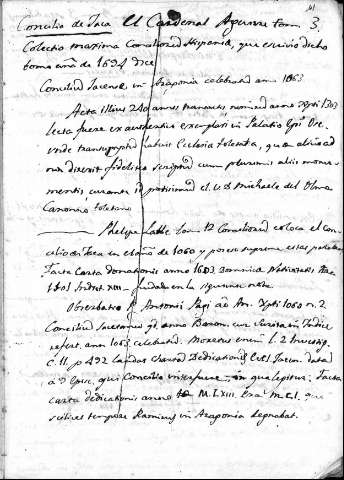 41
Concilio de Jaca El Cardenal Aguirre tom. 3.
Colectio maxima Conciliorum Hispaniæ, que escrivio dicho
tomo año de 1694 dice
Concilium Jacense in Aragonia celebratum anno 1063
Acta illius 240 annis transactis nimirum anno Xpti 1303
lecta fuere ex authentico exemplari in Palatio Epi Os-
unde transumptum habuit Ecclesia toletana, quæ alio ad
nos direxit fideliter scriptum cum plurimis aliis monu-
mentis curante id potissimum el. v. D. Michaele del Olmo
Canonico toletano
Phelipe Labbe tom. 12 Conciliorum coloca el Con-
cilio de Jaca en el año de 1060 y por eso suprime estas palabras
Facta Carta donationis anno 1063 Dominicæ Nativitatis Era
1101 Indict. XIII. fundado en la siguiente nota
Observatio P. Antonii Pagi ad An. Xpti 1060 n. 2
Concilium Jacetanum qd. anno Baron. cum Zurita in Indice
refert, anno 1063 celebratum. Moretus enim l. 2 Investig.
c. 11. p 492 laudat Chartam Dedicationis Eccl. Jacen. data
à 9 Episc. qui Concilio interfuere, in qua legitur: Facta
carta dedicationis anno M. LXIII. Era M. C. I. quo
scilicet tempore Ramirus in Aragonia regnabat.